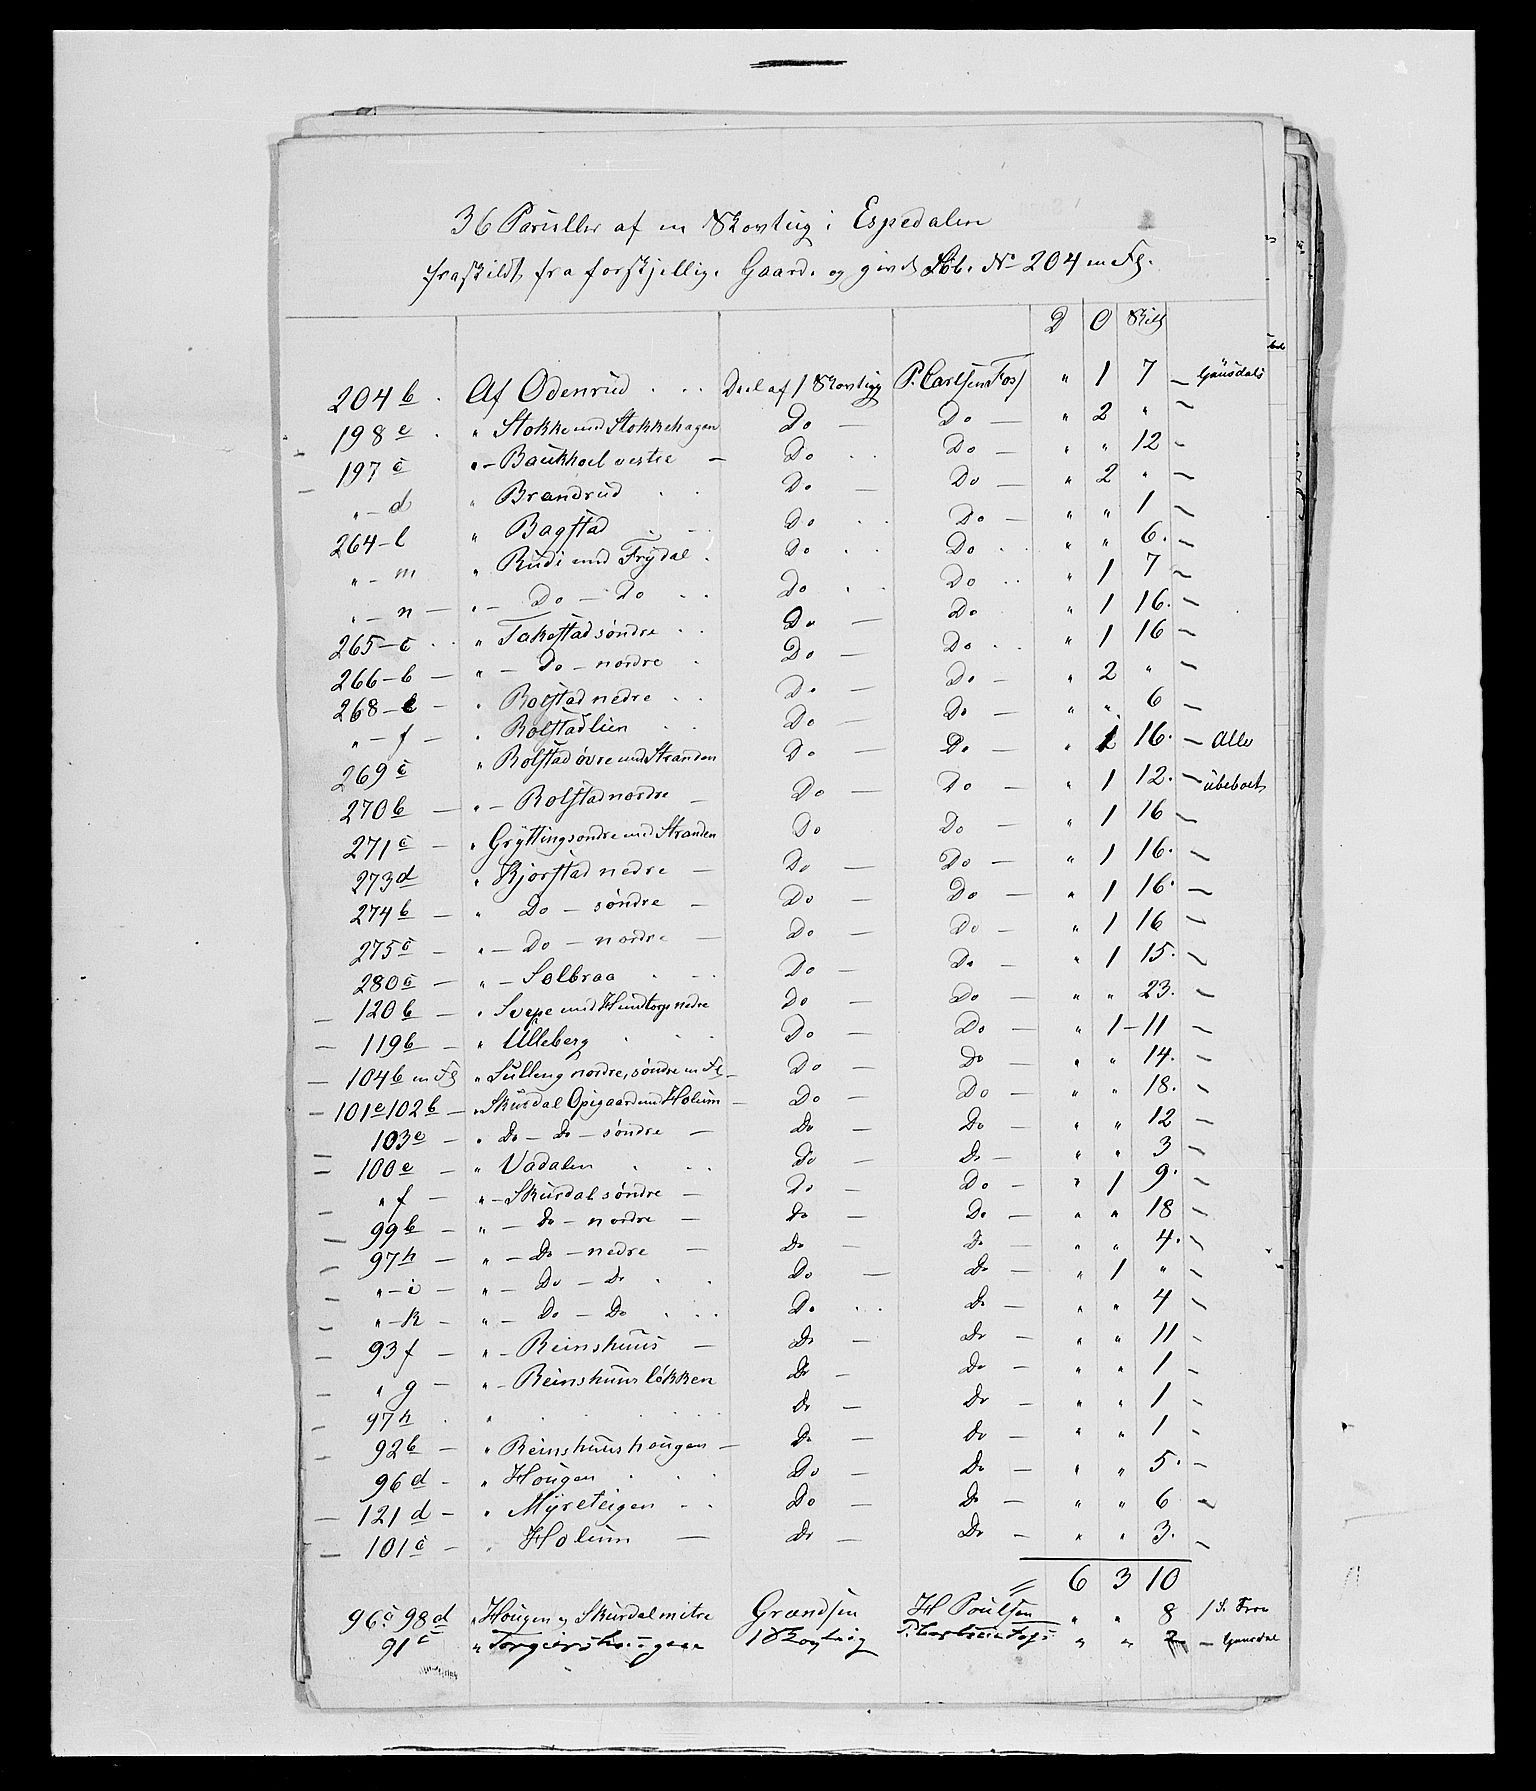 36 Pareller af en Skovteig i Espedalen
fraskildt fra forskjellige Gaarde og givet Løb. No 204 m Fl.
D O Skill
204 b . Af Odenrud . . . Deel af 1 Skovteig P. Carlsen Foss " 1 7 — Gausdals
198 e . " Stokke med Stokkehagen Do — Do — " 2 " —
197 c " — Baukhoel vestre — Do . . Do — " " 12 —
" — d " Brandrud . . Do — Do — " 2 " —
264 — l " Bagstad . . . Do . . Do — " " 1 —
" — m " Rudi med Frydal . Do . . Do . . " " 6. —
" — n — " — Do — Do . . Do . . Do . . " 1 7 —
265 — c . . " Tokestad søndre . . Do — Do " 1 16. —
266 — b — " — Do — nordre . Do — Do . . " 1 16 —
268 — e — " Rolstad nedre . . Do — Do — " 2 " —
" — f — " Rolstadlien . . Do — Do — " " 6 —
269 c " Rolstad øvre med Stranden Do — Do — " 1 16. — Alle
270 b — " — Rolstad nordre — Do — Do — " 1 12. — ubeboet
271 c — " Gryttingsøndre med Stranden Do Do — " 1 16 —
273 d " Kjorstad nedre — Do — Do — " 1 16. —
274 b — " Do — søndre — Do — Do — " 1 16. —
275 c — " — Do — nordre — Do — Do — " 1 16 —
280 c — " — Solbraa . . . Do — Do — " 1 15. —
120 b — " Svepe med Hundtorp nedre Do — Do — " " 23. —
119 b — " Ulleberg . . . Do — Do — " 1 — 11 —
104 b m Fl " Sulleng nordre, søndre m Fl — Do — Do — " " 14. —
101 e 102 b — " Skurdal Opigaard med Holum — Do — Do — " " 18. —
103 e — " Do — Do — søndre — Do — Do — " " 12 —
100 e — " Vadalen . . . Do — Do — " " 3 —
" f — " — Skurdal søndre — Do — Do — " 1 9. —
99 b — " — Do — nordre — Do — Do — " " 18 —
97 h — " — Do — nedre — Do — Do — " " 4. —
" — i — " — Do — Do . . Do — Do — " 1 " —
" — k — " — Do — Do . . . Do . . . Do — " " 4 —
93 f — " — Reinshuus — Do — Do — " " 11 —
" g — " — Reinshuusløkken Do — Do — " " 1 —
97 h . " . . . . Do — Do — " " 1 —
92 b — " Reinshuushougen — Do — Do — " " 1 —
96 d — " Hougen . . . Do — Do — " " 5. —
121 d — " Myreteigen . . Do — Do — " " 6 —
101 c — " Holum — Do — Do — " " 3. —
6 3 10
96 c 98 d " Hougen og Skurdal mitre Grandsen H Poulsen " " 8 / S. Fron
91 c " Torgiershougene 1 Skovteig P. Carlsen Foss " " 2 — Gausdal